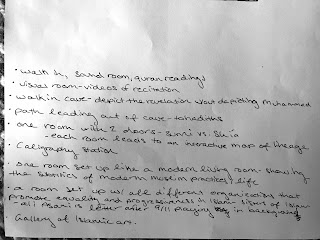 • walk in, sound room, quran readings
• visual room - videos of recitation
• walk in cave - depict the revelation w/out depicting Muhammed
• path leading out of cave - to hadiths
• one room with 2 doors - sunni vs. Shi'a
- each room leads to an interactive map of lineage
• Caligraphy station
• one room set up like a modern living room - showing
the of modern muslim practices/life
• a room set up w/ all different organizations that
promote equality and progressiveness in Islam
- letter after 9/11 praying in
• Gallery of Islamic art.